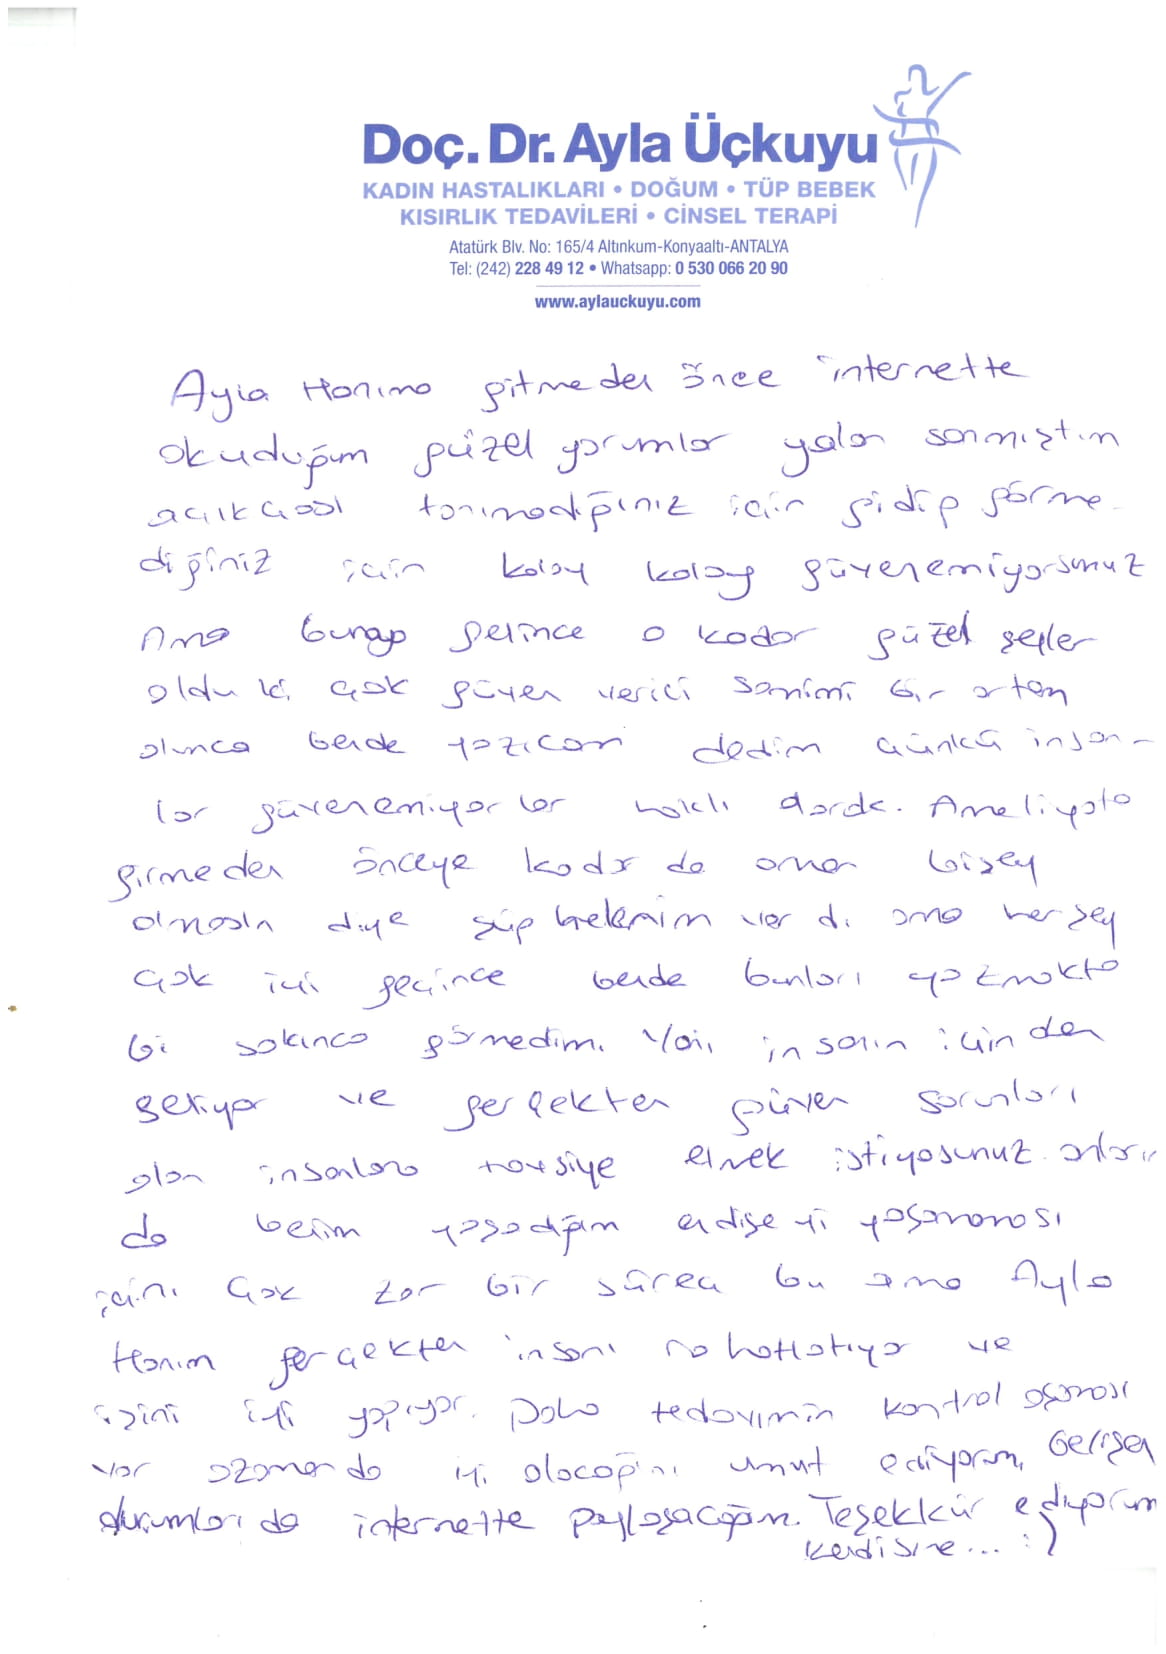 Doç. Dr. Ayla Üçkuyu
KADIN HASTALIKLARI • DOĞUM • TÜP BEBEK
KISIRLIK TEDAVİLERİ • CİNSEL TERAPİ
Atatürk Blv. No: 165/4 Altınkum-Konyaaltı-ANTALYA
Tel: (242) 228 49 12 • Whatsapp: 0 530 066 20 90
www.aylauckuyu.com
Ayla Hanıma gitmeden önce internette
okuduğum güzel yorumlar yalan sanmıştım
açıkçası tanımadığınız için gidip görme
diğiniz için kolay kolay güvenemiyorsunuz
Ama buraya gelince o kadar güzel şeyler
oldu ki çok güven verici samimi bir ortam
olunca bende yazıcam dedim çünkü insan-
lar güvenemiyorlar haklı olarak. Ameliyata
girmeden önceye kadar da aman bişey
olmasın diye şüphelenim var dı ama herşey
çok iyi geçince bende bunları yazmakta
bi sakınca görmedim. Yani insanın içinden
geliyor ve gerçekten güven sorunları
olan insanlara tavsiye etmek istiyosunuz. onların
da benim yaşadığım endişeyi yaşamaması
için. Çok zor bir süreç bu ama Ayla
Hanım gerçekten insanı rahatlatıyor ve
işini iyi yapıyor. Daha tedavimin kontrol aşaması
var ozaman da iyi olacağını umut ediyorum. Gelişen
durumları da internette paylaşacağım. Teşekkür ediyorum
kendisine... :)